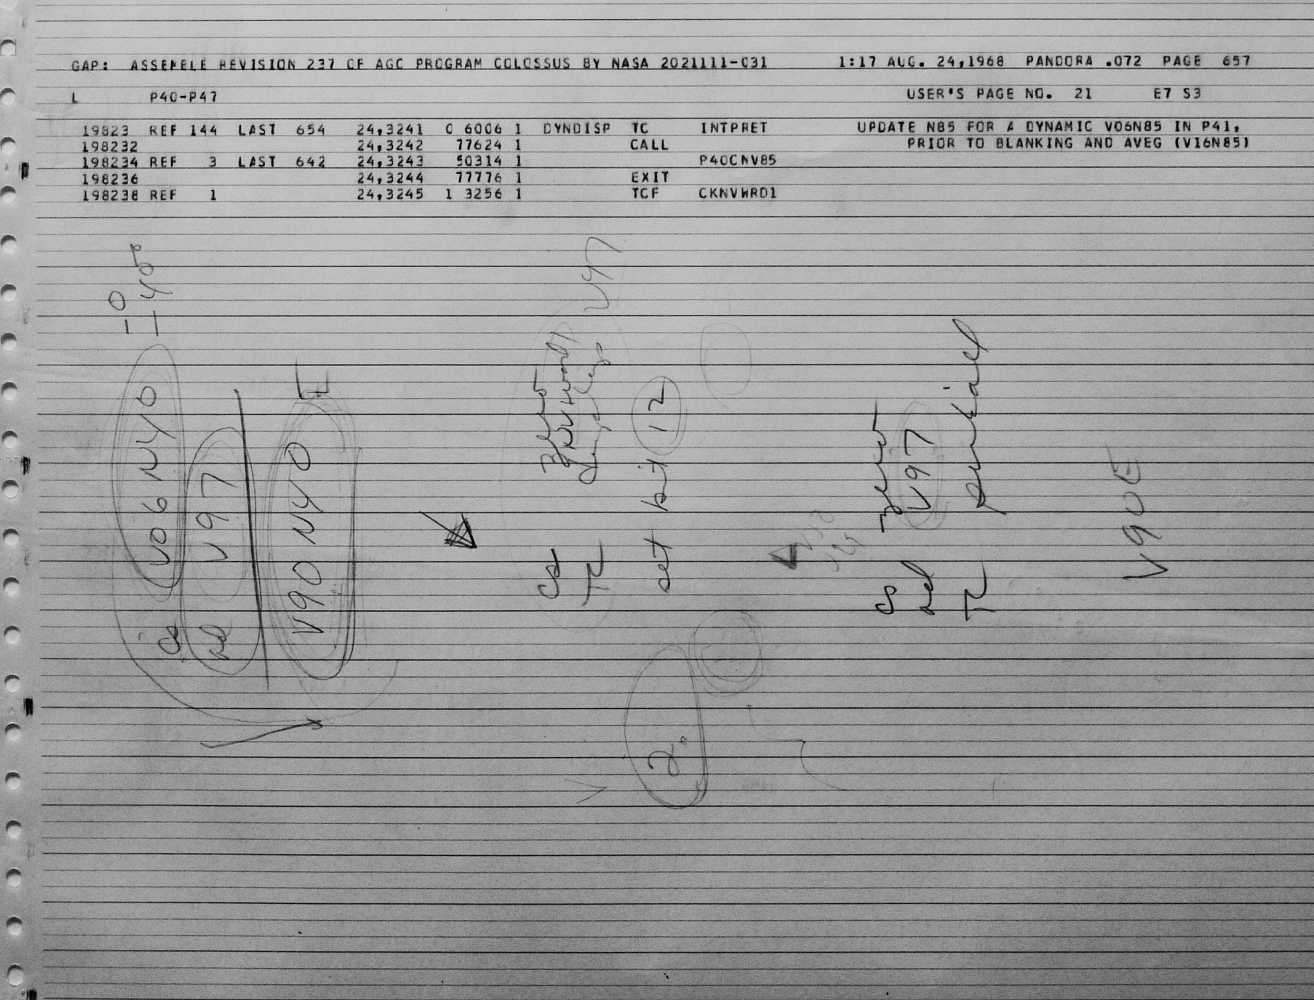 GAP: ASSEMBLE REVISION 237 OF AGC PROGRAM COLOSSUS BY NASA 2021111-031 1:17 AUG. 24,1968 PANDORA .072 PAGE 657
L P40-P47 USER'S PAGE NO. 21 E7 S3
19823 REF 144 LAST 654 24,3241 0 6006 1 DYNDISP TC INTPRET UPDATE N85 FOR A DYNAMIC V06N85 IN P41,
198232 24,3242 77624 1 CALL PRIOR TO BLANKING AND AVEG (V16N85)
198234 REF 3 LAST 642 24,3243 50314 1 P40CNV85
198236 24,3244 77776 1 EXIT
198238 REF 1 24,3245 1 3256 1 TCF CKNVWRD1
CS V06N40
AD V97
V90 N40
CS zero
TC
V97
set bit 12
CS zero
AD V97
TC
V90E
2.